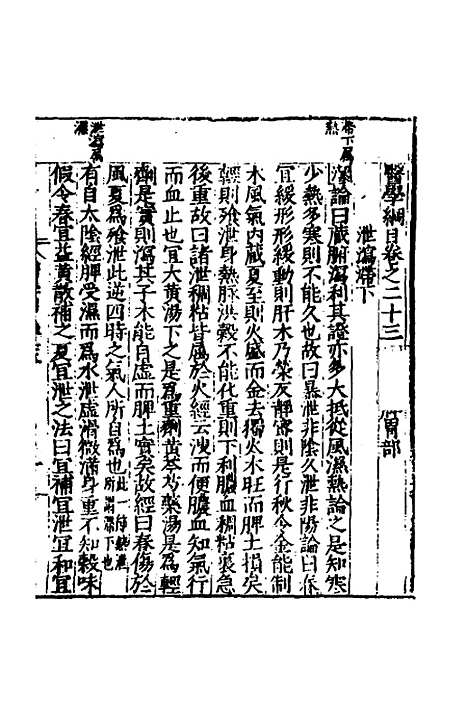 醫學綱目卷之二十三　　胃部
泄瀉滯下
滯下為熱
潔論曰臟腑瀉利其證亦多大抵從風濕熱論之是知寒
少熱多寒則不能久也故曰暴泄非陰久泄非陽論曰春
宜緩形形緩動則肝木乃榮反靜密則是行秋令金能制
木風氣内藏夏至則火盛而金去獨火木旺而脾土損矣
輕則飧泄身熱脉洪穀不能化重則下利膿血稠粘裏急
後重故曰諸泄稠粘皆屬於火經云溲而便膿血知氣行
而血止也宜大黄湯下之是為重劑黄芩芍藥湯是為輕
劑是實則瀉其子木能自虛而脾土實矣故經曰春傷於
風夏為飧泄此逆四時之氣人所自為也此一節熱泄所謂滯下也
泄瀉為濕
有自太陰經脾受濕而為水泄虛滑微滿身重不知穀味
假令春宜益黄散補之夏宜泄之法曰宜補宜泄宜和宜